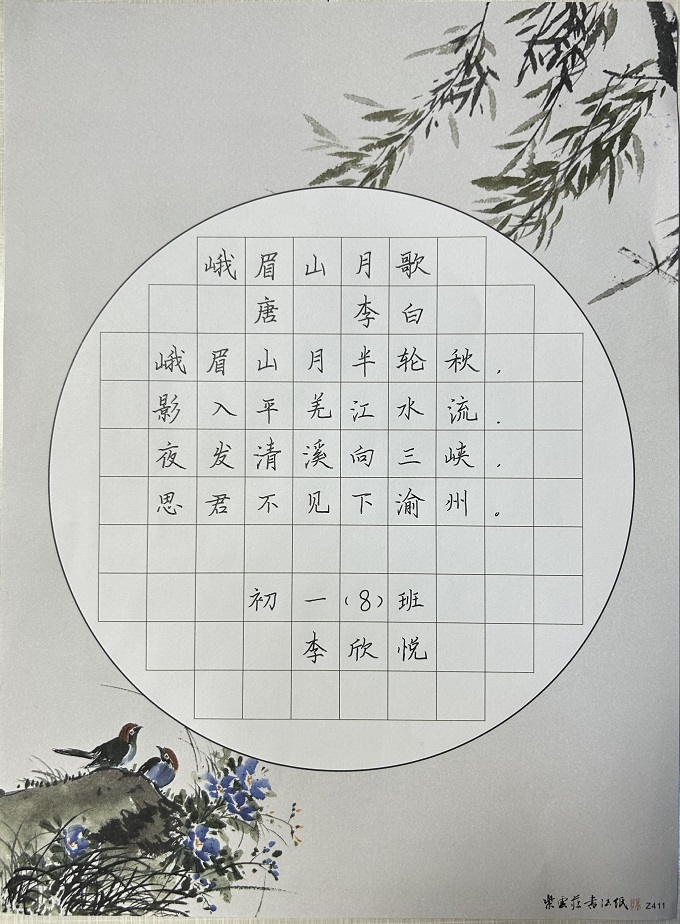 峨眉山月歌
唐 李白
峨眉山月半轮秋，
影入平羌江水流．
夜发清溪向三峡，
思君不见下渝州。
初一(8)班
李欣悦
紫云庄书法纸 Z411